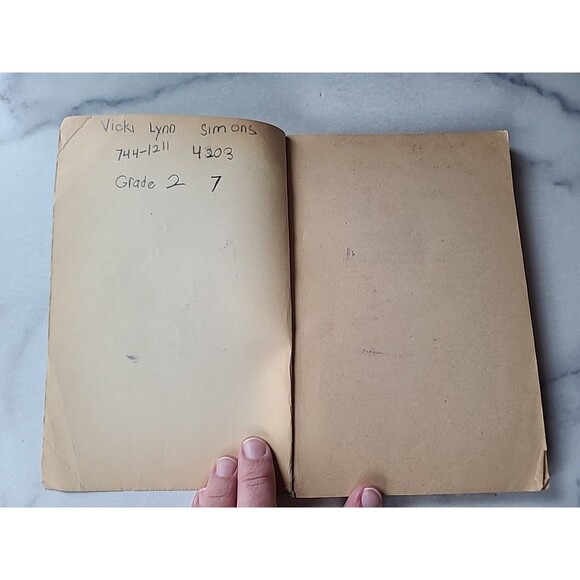 Vicki Lynn Simons
744-1211 4203
Grade 2 7